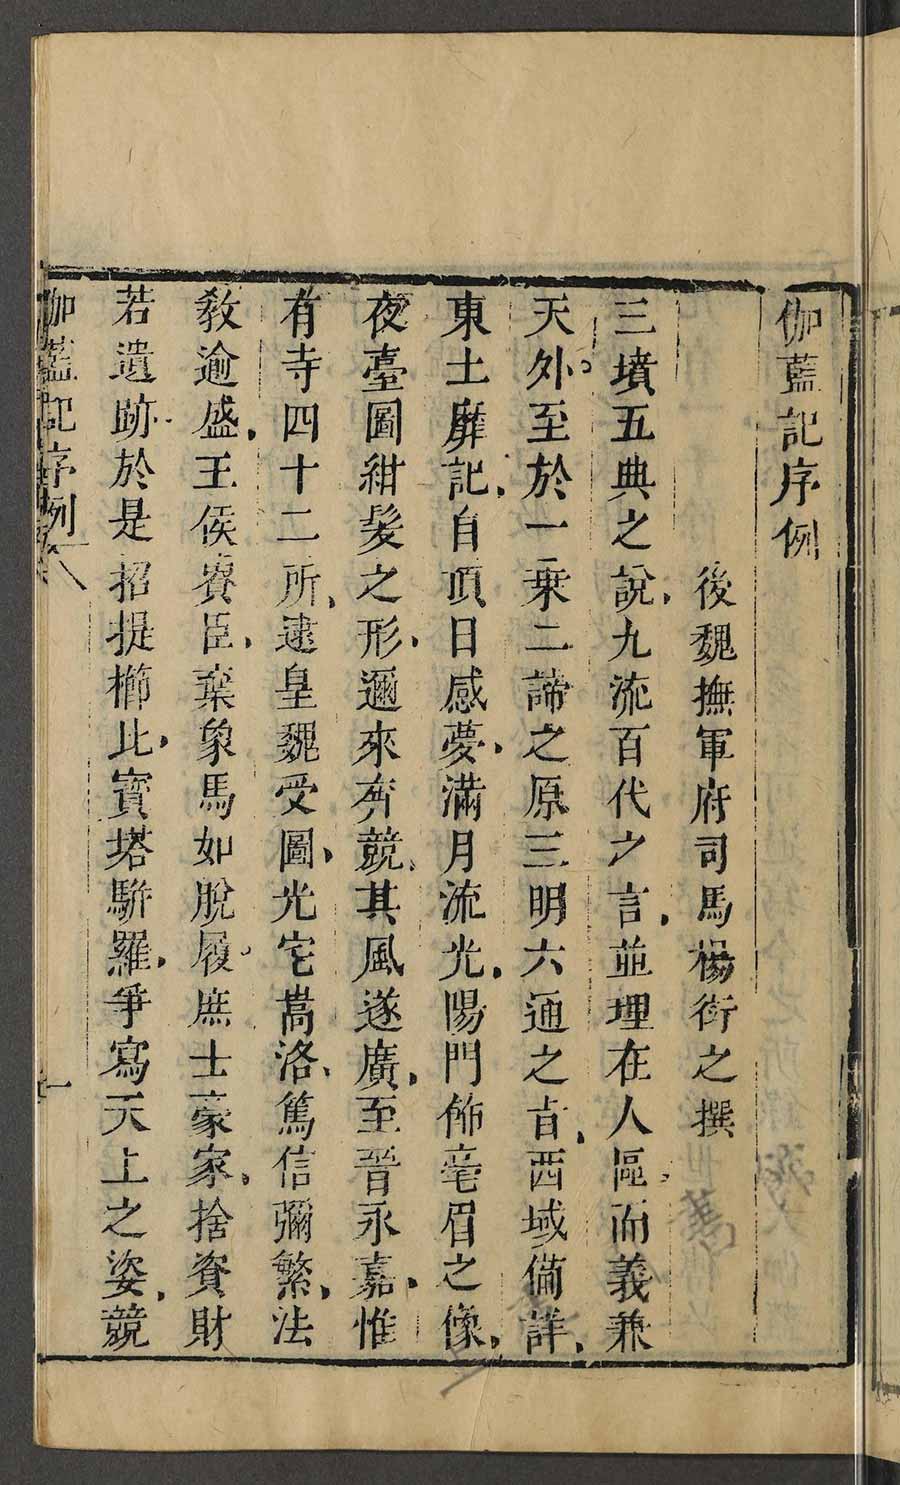 伽藍記序例
後魏撫軍府司馬楊衒之撰
三墳五典之說九流百代之言並理在人區而義兼
天外至於一乗二諦之原三明六通之㫖西域備詳
東土靡記自頂日感夢滿月流光陽門飾毫眉之像
夜臺圖紺髮之形邇來奔競其風遂廣至晉永嘉惟
有寺四十二所逮皇魏受圖光宅嵩洛篤信彌繁法
敎逾盛王侯賚臣棄象馬如脫履庶士豪家捨資財
若遺跡於是招提櫛比寳塔騈羅爭寫天上之姿競
伽藍記序例
一